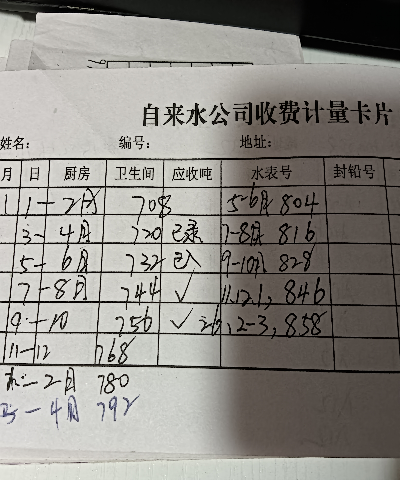 自来水公司收费计量卡片
姓名: 编号: 地址:
月 日 厨房 卫生间 应收吨 水表号 封铅号
1 1-2月 708 5-6月 804
3-4月 720 已录 7-8月 816
5-6月 732 已入 9-10月 828
7-8月 744 ✓ 11.12.1, 846
9-10 756 ✓ 2-3, 858
11-12 768
一2月 780
一4月 792